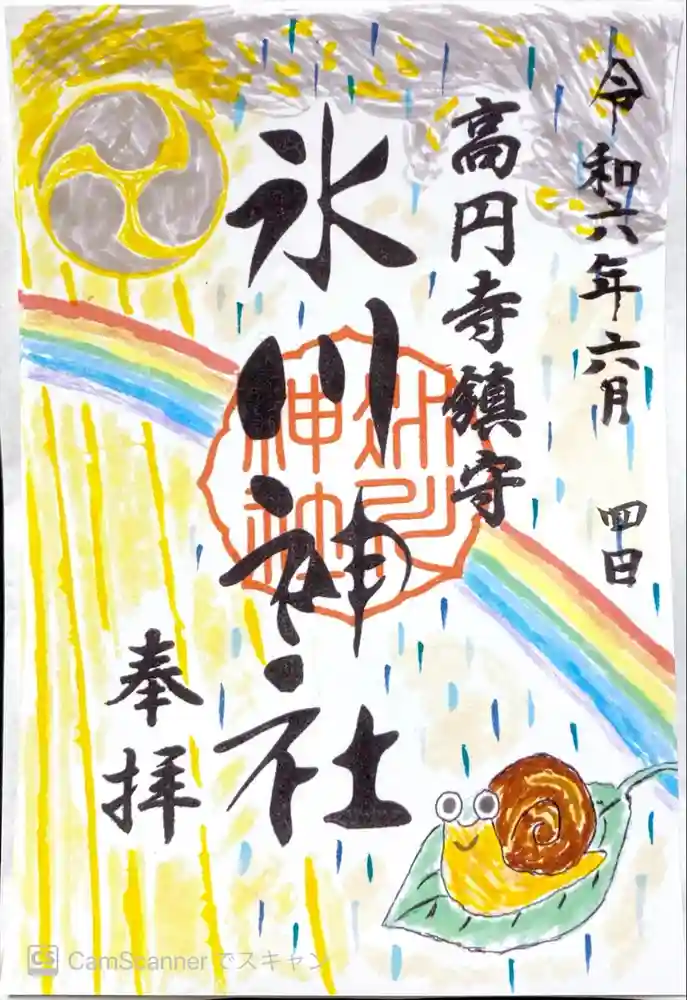 令和六年六月 四日
高円寺鎮守
氷川神社
氷川神社
奉拝
CS CamScanner でスキャン